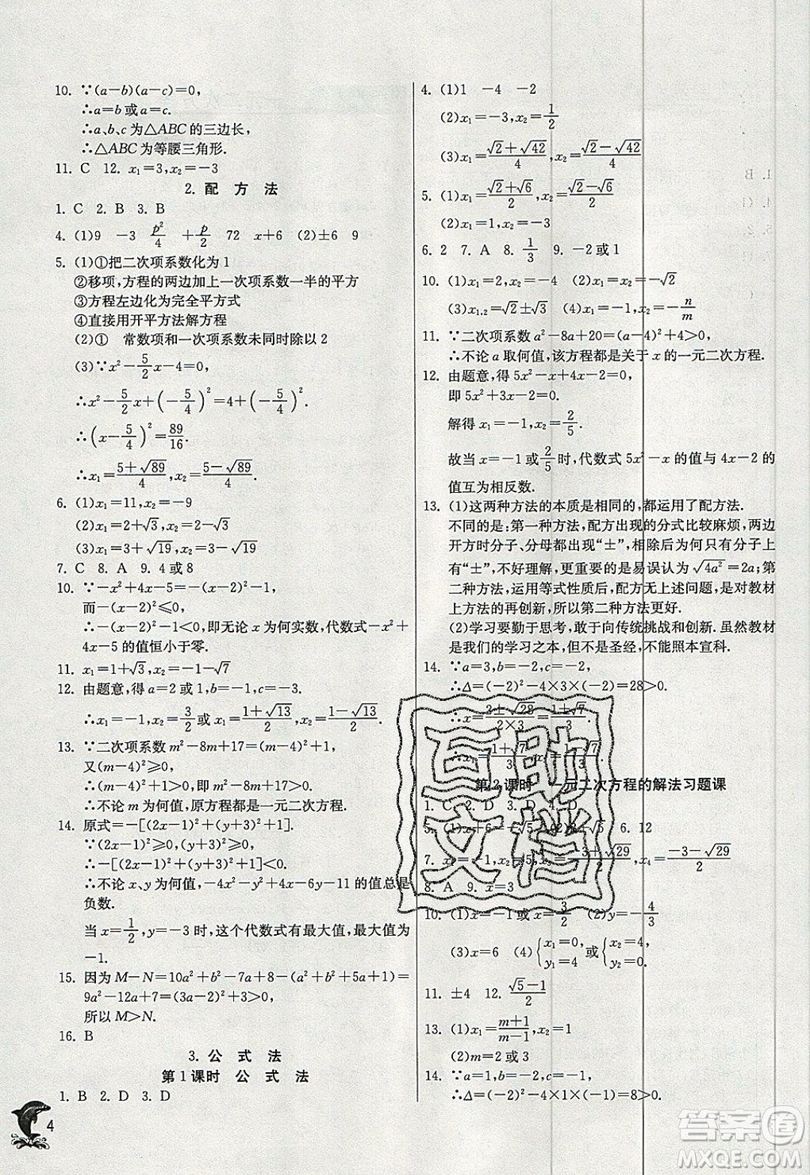 10. ∵(a－b)(a－c)=0,
∴a=b 或 a=c.
∴a、b、c 为△ABC 的三边长,
∴△ABC 为等腰三角形.
11. C 12. x₁=3,x₂=－3
2. 配 方 法
1. C 2. B 3. B
4. (1)9 －3 p²/4 +p/2 72 x+6 (2)±6 9
5. (1)①把二次项系数化为 1
②移项,方程的两边加上一次项系数一半的平方
③方程左边化为完全平方式
④直接用开平方法解方程
(2)① 常数项和一次项系数未同时除以 2
(3)∵x²－5/2x－4=0,
∴x²－5/2x+(－5/4)²=4+(－5/4)².
∴(x－5/4)²=89/16.
∴x₁=(5+√89)/4,x₂=(5－√89)/4.
6. (1)x₁=11,x₂=－9
(2)x₁=2+√3,x₂=2－√3
(3)x₁=3+√19,x₂=3－√19
7. C 8. A 9. 4 或 8
10. ∵－x²+4x－5=－(x－2)²－1,
而－(x－2)²≤0,
∴－(x－2)²－1<0,即无论 x 为何实数,代数式－x²+
4x－5 的值恒小于零.
11. x₁=－1+√7,x₂=－1－√7
12. 由题意,得 a=2,b=－1,c=－3.
∴x₁=－1,x₂=3/2 或 x₁=(1+√13)/2,x₂=(1－√13)/2.
13. ∵二次项系数 m²－8m+17=(m－4)²+1,
又∵(m－4)²≥0,
∴(m－4)²+1>0,即 m²－8m+17>0.
∴不论 m 为何值,原方程都是一元二次方程.
14. 原式=－[(2x－1)²+(y+3)²+1].
∵(2x－1)²≥0,(y+3)²≥0,
∴－[(2x－1)²+(y+3)²+1]<0.
∴不论 x、y 为何值,－4x²－y²+4x－6y－11 的值总是
负数.
当 x=1/2,y=－3 时,这个代数式有最大值,最大值为
－1.
15. 因为 M－N=10a²+b²－7a+8－(a²+b²+5a+1)=
9a²－12a+7=(3a－2)²+3>0,
所以 M>N.
16. B
3. 公 式 法
第 1 课时 公 式 法
1. B 2. D 3. D
4
4. (1)1 －4 －2
(2)x₁=－3,x₂=1/2
(3)x₁=(√2+√42)/4,x₂=(√2－√42)/4
5. (1)x₁=(√2+√6)/2,x₂=(√2－√6)/2
(2)x₁=x₂=1
6. 2 7. A 8. 1/3 9. －2 或 1
10. (1)x₁=3,x₂=1 (2)x₁=0,x₂=－√2
(3)x₁,₂=√2±√3 (4)x₁=0,x₂=－n/m
11. ∵二次项系数 a²－8a+20=(a－4)²+4>0,
∴不论 a 取何值,该方程都是关于 x 的一元二次方程.
12. 由题意,得 5x²－x+4x－2=0,
即 5x²+3x－2=0.
解得 x₁=－1,x₂=2/5.
故当 x=－1 或 2/5 时,代数式 5x²－x 的值与 4x－2 的
值互为相反数.
13. (1)这两种方法的本质是相同的,都运用了配方法.
不同的是:第一种方法,配方出现的分式比较麻烦,两边
开方时分子、分母都出现“±”,相除后为何只有分子上
有“±”,不好理解,更重要的是易误认为√4a²=2a.第
二种方法,运用等式性质后,配方无上述问题,是对教材
上方法的再创新,所以第二种方法更好.
(2)学习要勤于思考,敢于向传统挑战和创新.虽然教材
是我们的学习之本,但不是圣经,不能照本宣科.
14. ∵a=3,b=－2,c=－2,
∴Δ=(－2)²－4×3×(－2)=28>0.
∴x=(2±√28)/(2×3)=(1±√7)/3.
元二次方程的解法习题课
6. 12
8. A 9. x=3
10. (1)x=3/2 (2)y=－4/3
(3)x=6 (4){x₁=0, y₁=4 或 {x₂=1, y₂=0
11. ±4 12. (√5－1)/2
13. (1)x₁=(m+1)/(m－1),x₂=1
(2)m=2 或 3
14. ∵a=1,b=－2,c=－1,
∴Δ=(－2)²－4×1×(－1)=8>0.
互助
文档
答案圈
MXQE.COM